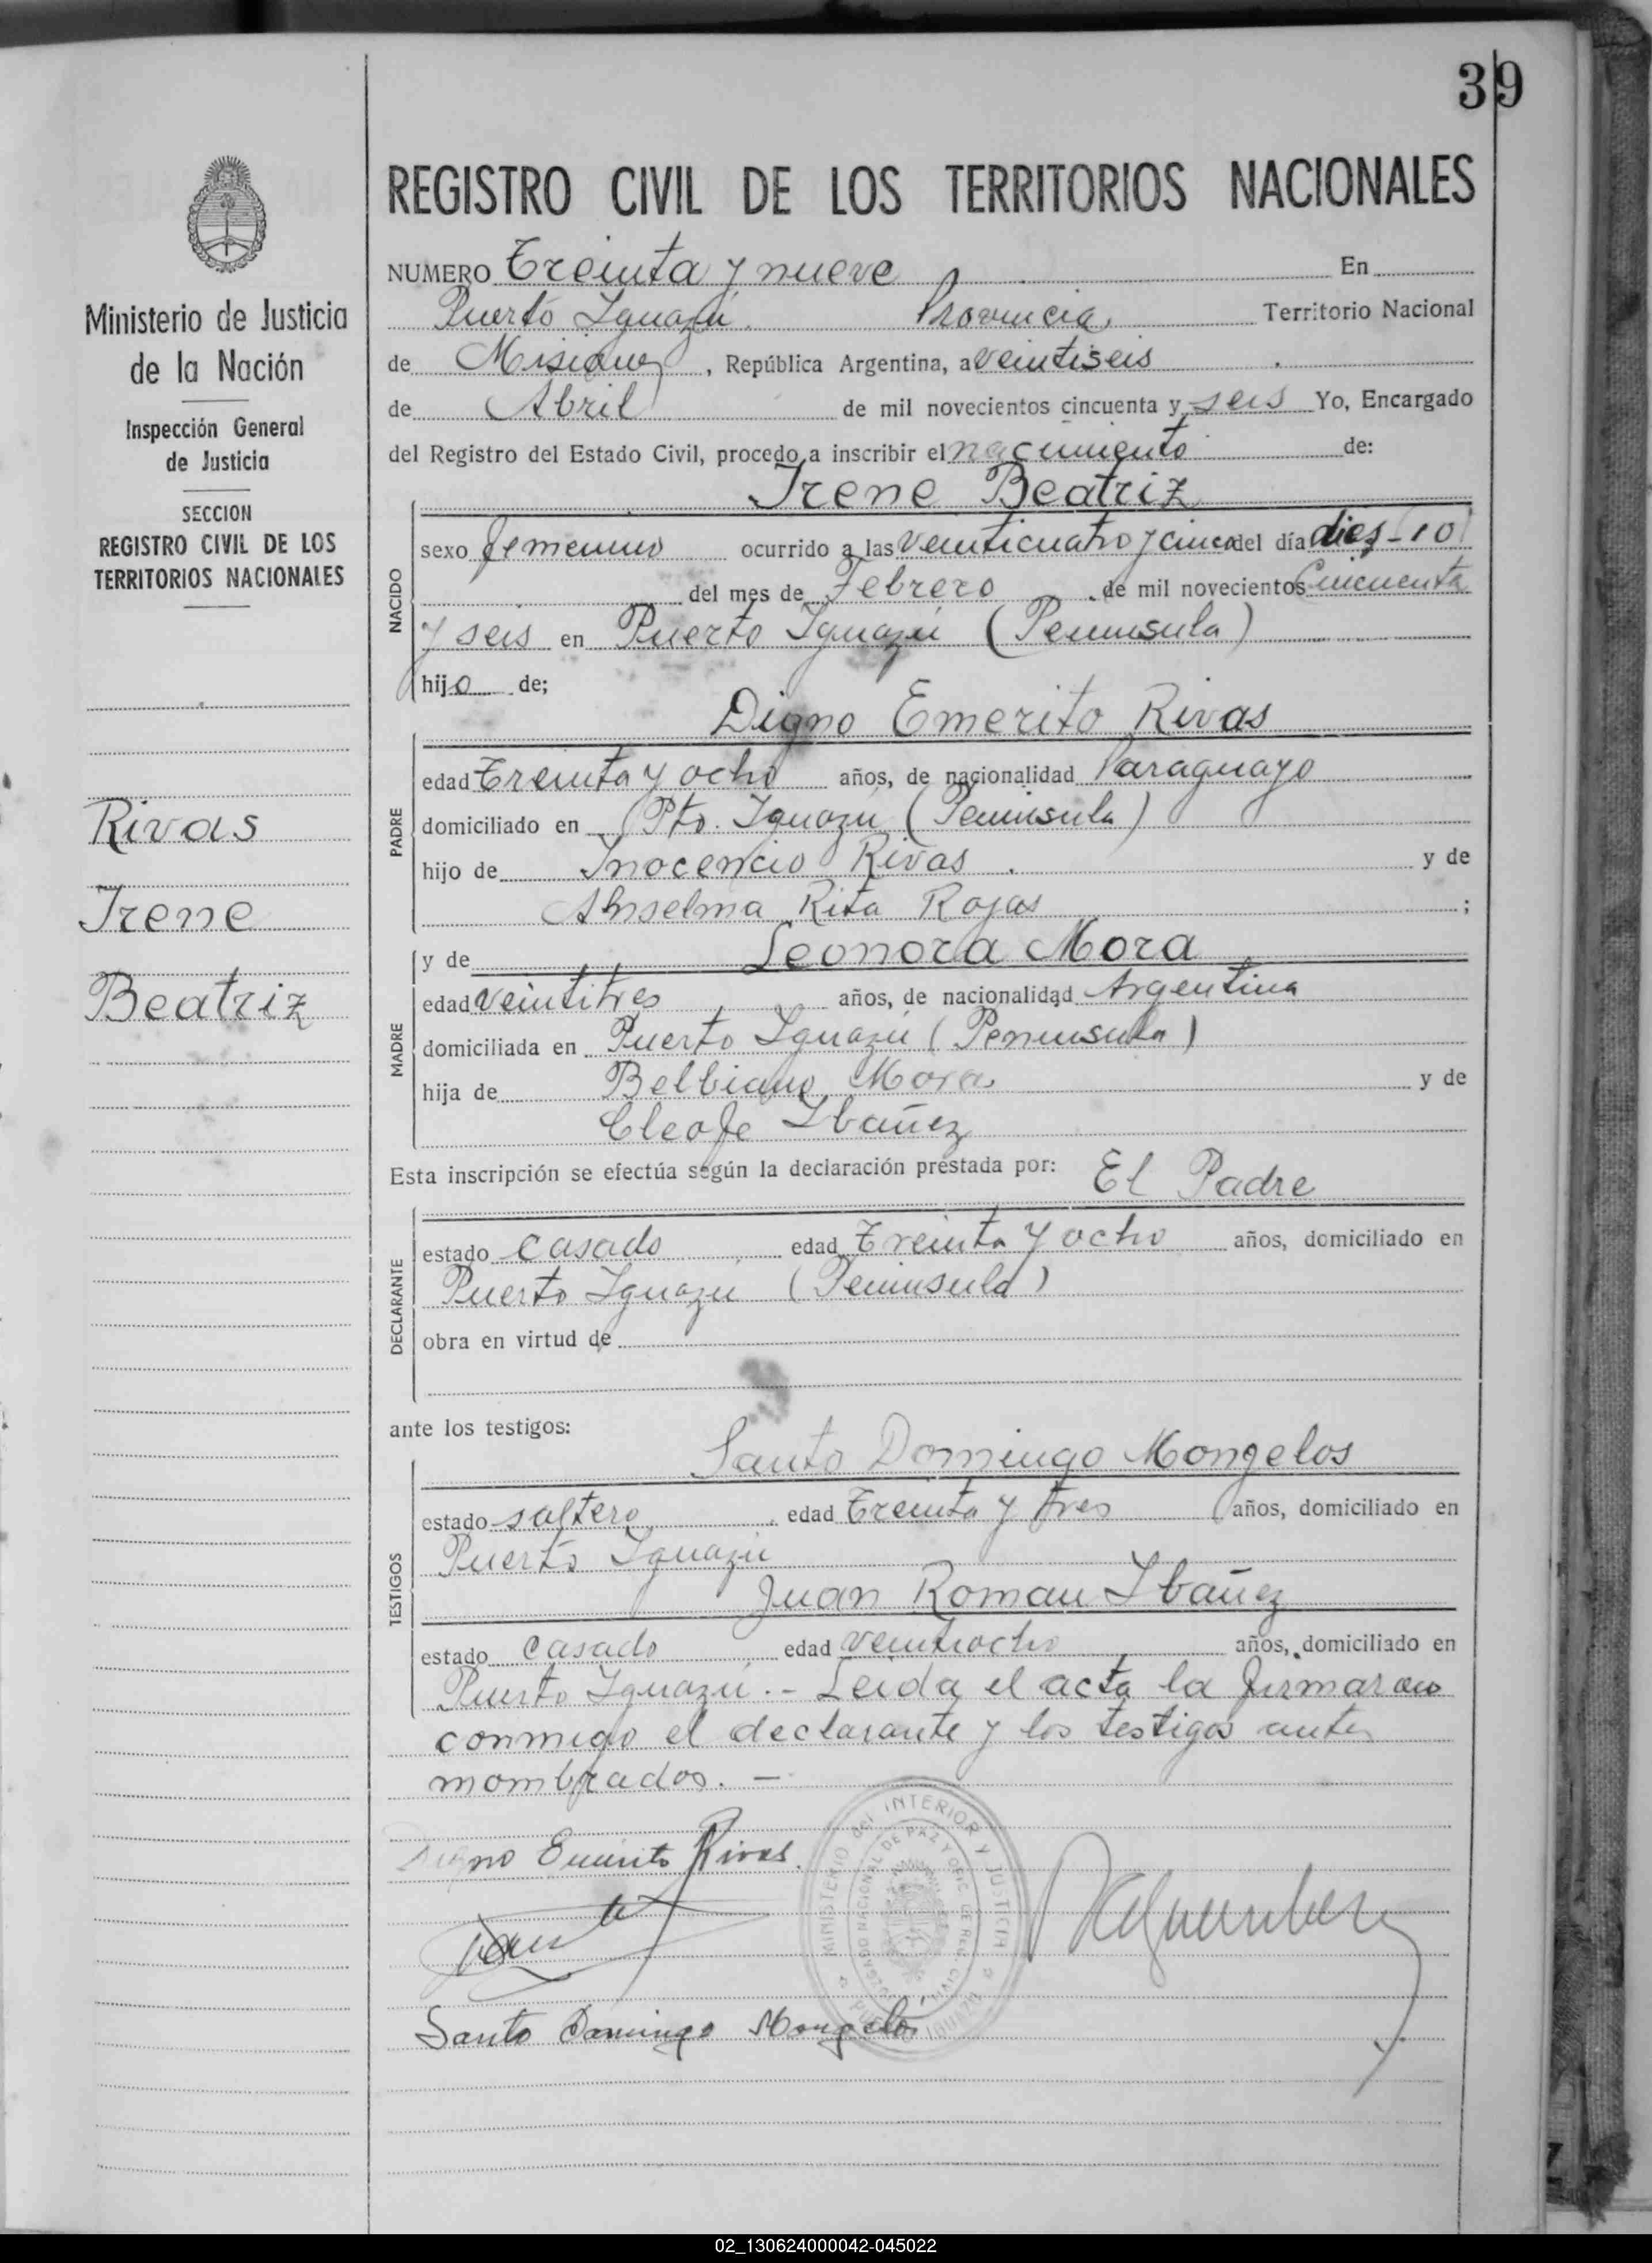 39
Ministerio de Justicia
de la Nación
Inspección General
de Justicia
SECCION
REGISTRO CIVIL DE LOS
TERRITORIOS NACIONALES
Rivas
Irene
Beatriz
REGISTRO CIVIL DE LOS TERRITORIOS NACIONALES
NUMERO Treinta y nueve En
Puerto Iguazú Provincia Territorio Nacional
de Misiones, República Argentina, a veintiseis
de Abril de mil novecientos cincuenta y seis Yo, Encargado
del Registro del Estado Civil, procedo a inscribir el nacimiento de:
Irene Beatriz
NACIDO
sexo femenino ocurrido a las veinticuatro y cinco del día dies-10
del mes de Febrero de mil novecientos Cincuenta
y seis en Puerto Iguazú (Peninsula)
hijo de;
Digno Emerito Rivas
PADRE
edad Treinta y ocho años, de nacionalidad Paraguayo
domiciliado en Pto. Iguazú (Peninsula)
hijo de Inocencio Rivas y de
Anselma Rita Rojas ;
y de Leonora Mora
MADRE
edad veintitres años, de nacionalidad Argentina
domiciliada en Puerto Iguazú (Peninsula)
hija de Belbiano Mora y de
Cleofe Ibañez
Esta inscripción se efectúa según la declaración prestada por: El Padre
DECLARANTE
estado casado edad Treinta y ocho años, domiciliado en
Puerto Iguazú (Peninsula)
obra en virtud de
ante los testigos:
Santo Domingo Mongelos
TESTIGOS
estado soltero edad Treinta y tres años, domiciliado en
Puerto Iguazú
Juan Roman Ibañez
estado casado edad veintiocho años, domiciliado en
Puerto Iguazú.- Leida el acta la firmaron
conmigo el declarante y los testigos antes
mombrados. -
Digno Emerito Rivas.
MINISTERIO del INTERIOR Y JUSTICIA
JUZGADO NACIONAL DE PAZ Y OFIC. DE REG. CIVIL
PUERTO IGUAZU
Santo Domingo Mongelós
02_130624000042-045022